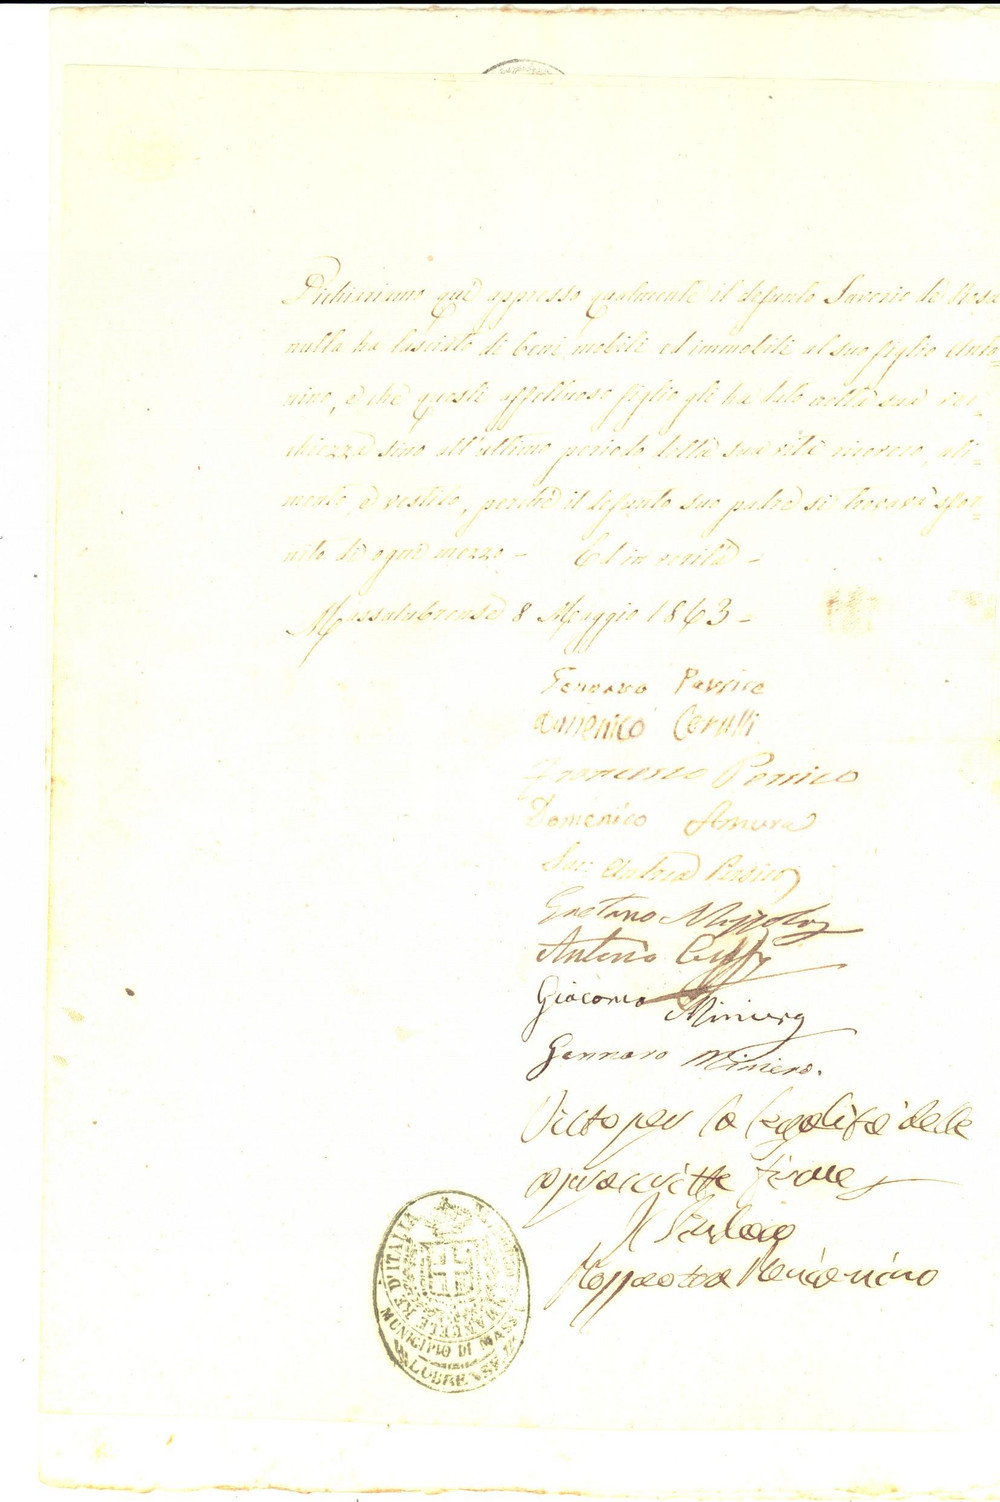 Dichiariamo quì appresso qualmente il defunto Saverio de Rosa
nulla ha lasciato di beni mobili ed immobili al suo figlio Anto=
nino, e che questi affettuoso figlio gli ha dato nella sua vec=
chiezza sino all'ultimo periodo della sua vita ricovero, ali=
mento, e vestito, perchè il defunto suo padre si trovava sfor=
nito di ogni mezzo - Ed in verità -
Massalubrense 8 Maggio 1863 -
Gennaro Persico
Domenico Cerulli
Francesco Persico
Domenico Amura
Sac. Andrea Persico
Gaetano
Antonio
Giacomo
Gennaro Miniero.
Visto per la legalità delle
soprascritte firme
Il Sindaco
MUNICIPIO DI MASSALUBRENSE
EMANUELE RE D'ITALIA